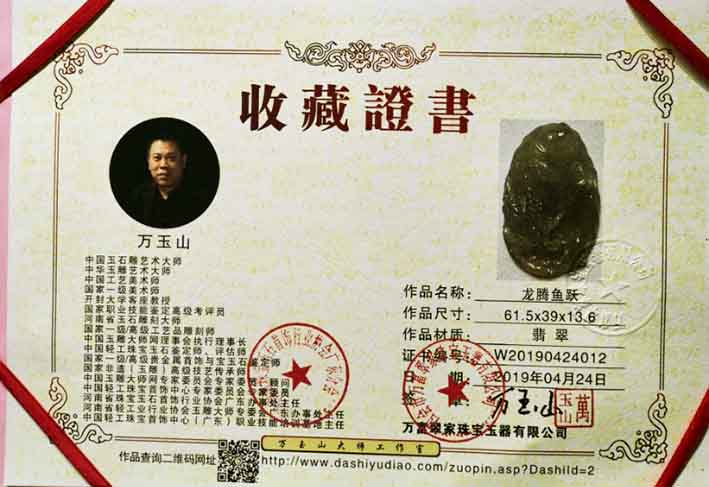 收藏證書
万玉山
中国玉石雕艺术大师
中华玉雕艺术大师
中国工艺美术师
国家一级美术师
开封大学客座教授
国家职业技能鉴定高级考评员
河南省玉石雕刻大师
国家一级/高级工艺品雕刻师
中国玉雕大师网理事会执行理事长
中国轻工珠宝玉石鉴定师、评估师
国家一级/高级贵金属首饰与宝玉石鉴定师
国家非遗（玉雕）高级技艺传承师
中国玉雕大师网专家委员会专家委员 顾问
中国轻工珠宝首饰中心专家委员会专家委员
河南省珠宝玉石首饰行业协会广东办事处主任
河南省轻工业行业协会玉雕大师专委会广东办事处主任
中国轻工珠宝首饰中心（广东）职业技能培训基地主任
作品名称： 龙腾鱼跃
作品尺寸： 61.5x39x13.6
作品材质： 翡翠
证书编号： W20190424012
日期： 2019年04月24日
万玉山
萬玉山
万富翠家珠宝玉器有限公司
万玉山大师工作室
作品查询二维码网址
http://www.dashiyudiao.com/zuopin,asp?DashiId=2